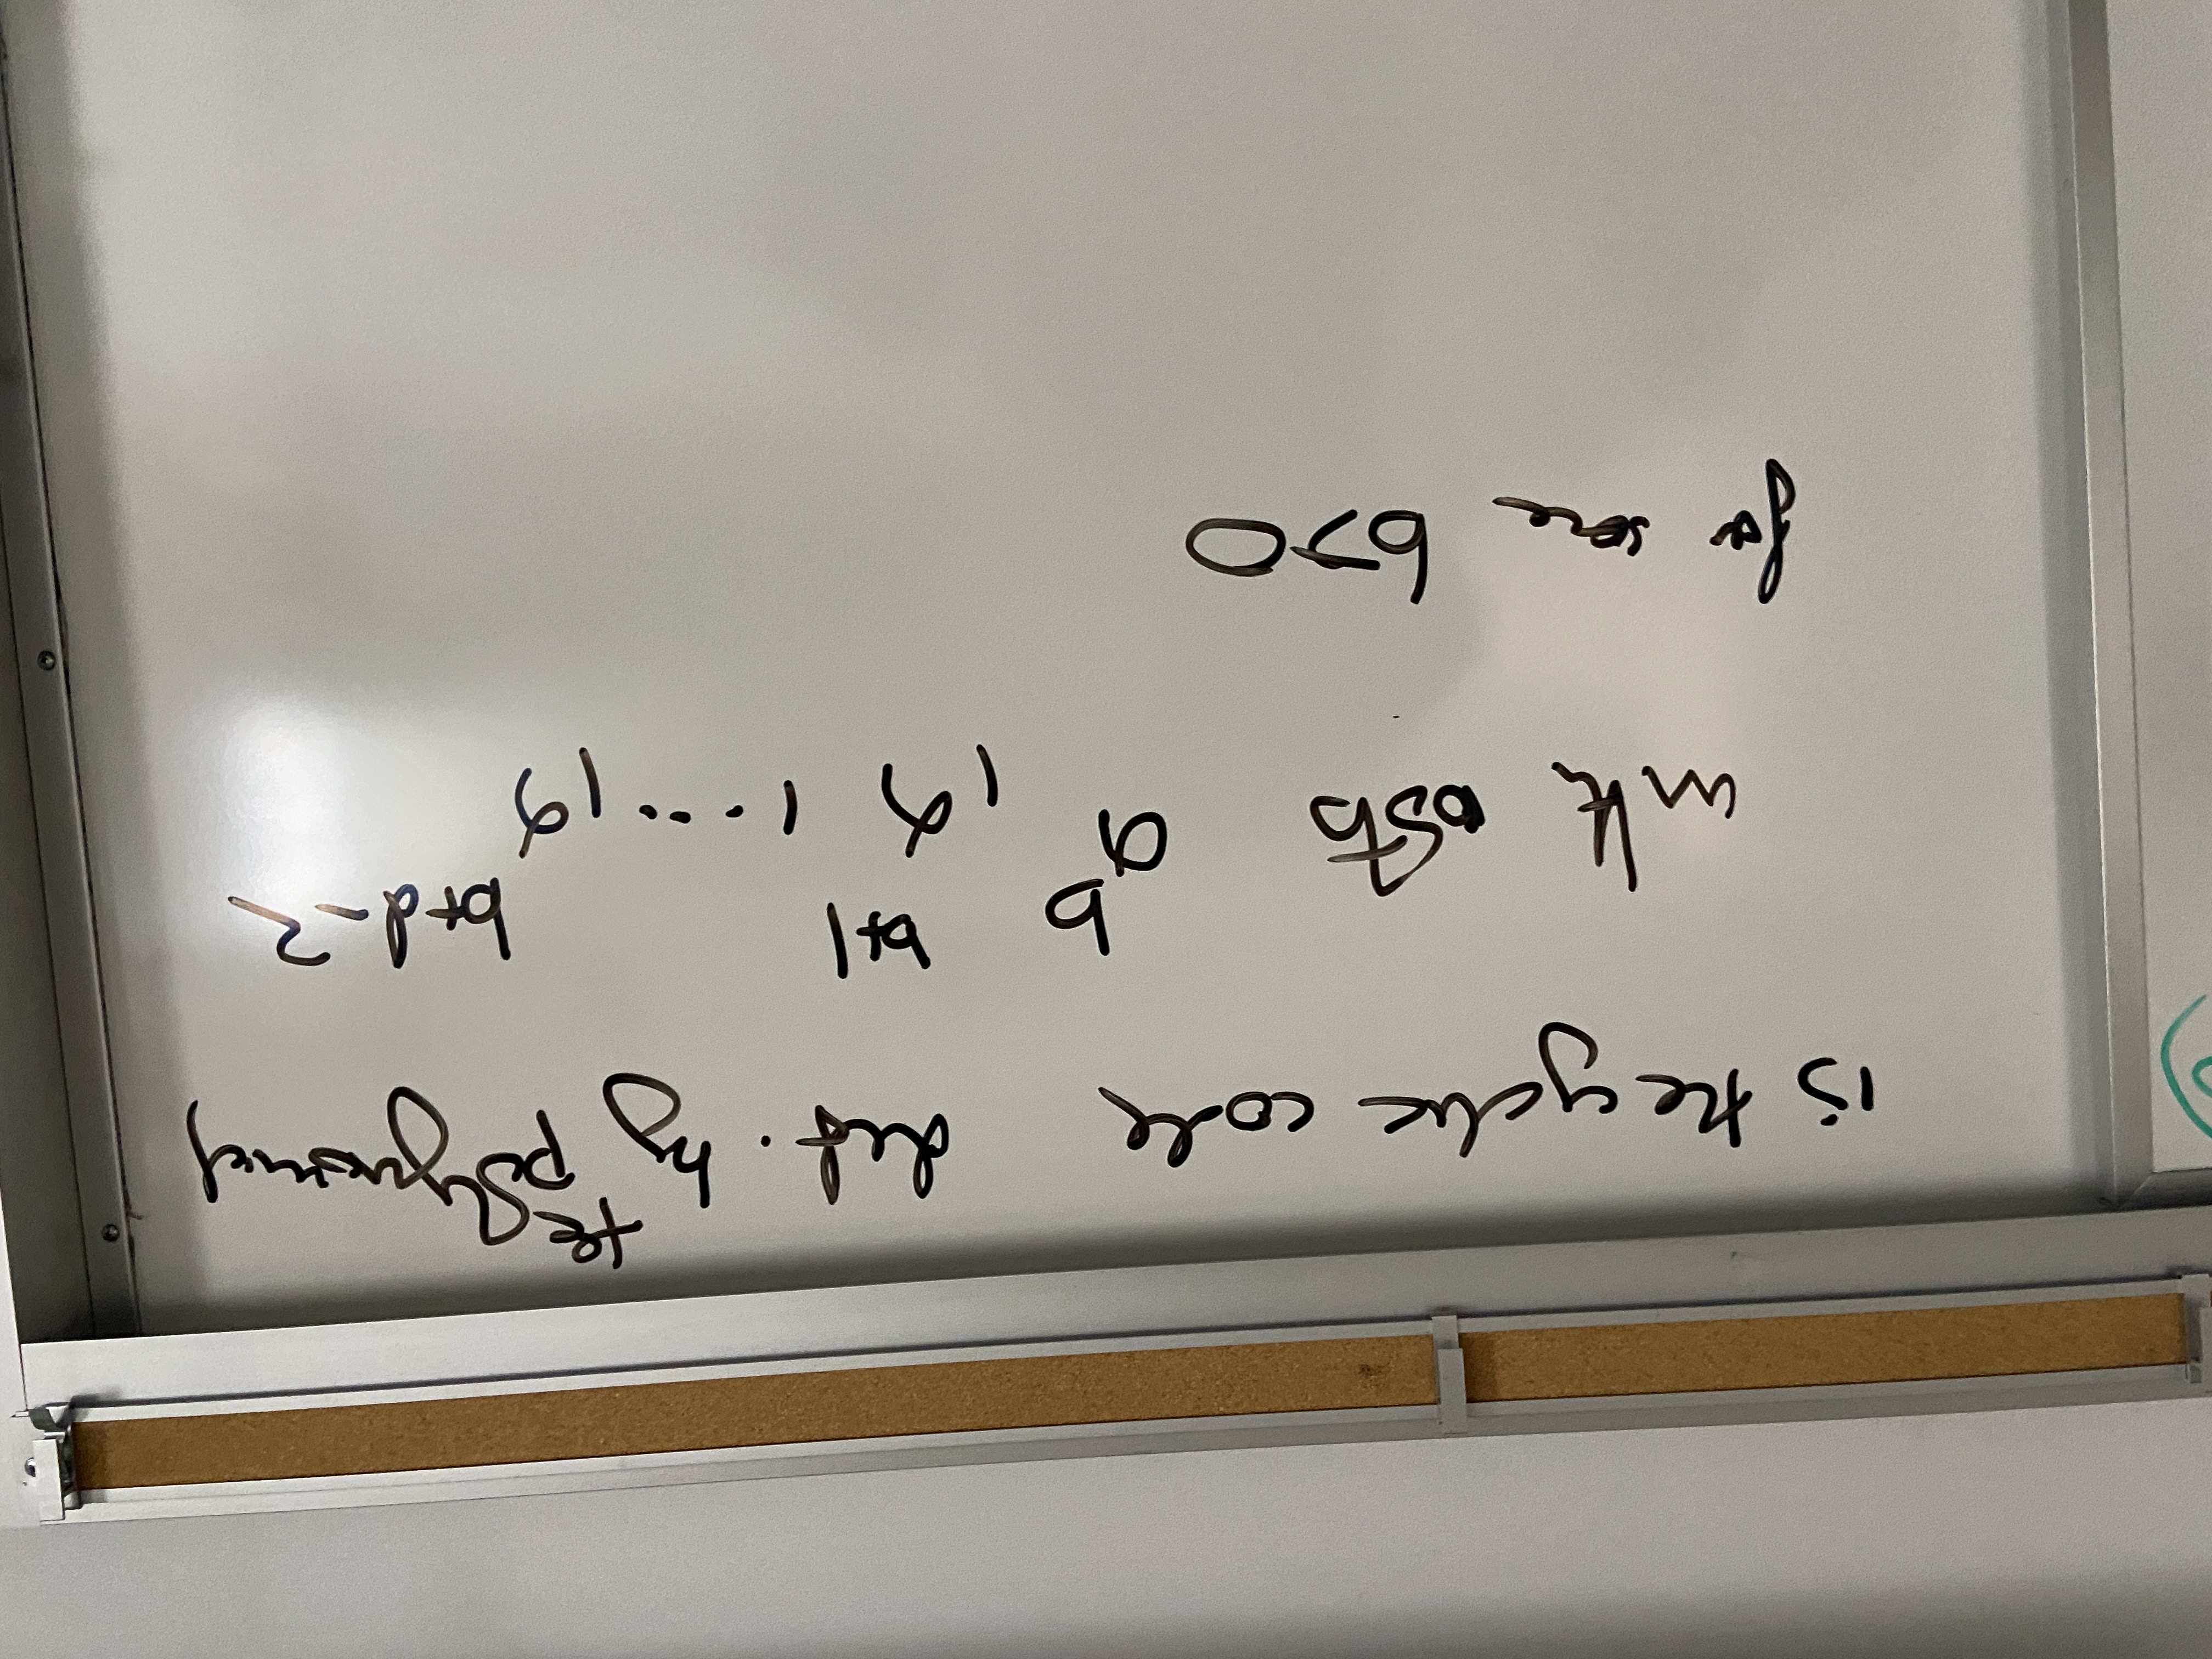 is the cyclic code det. by the polynomial
with roots a^b, a^{b+1}, ..., a^{b+d-2}
for some b>0